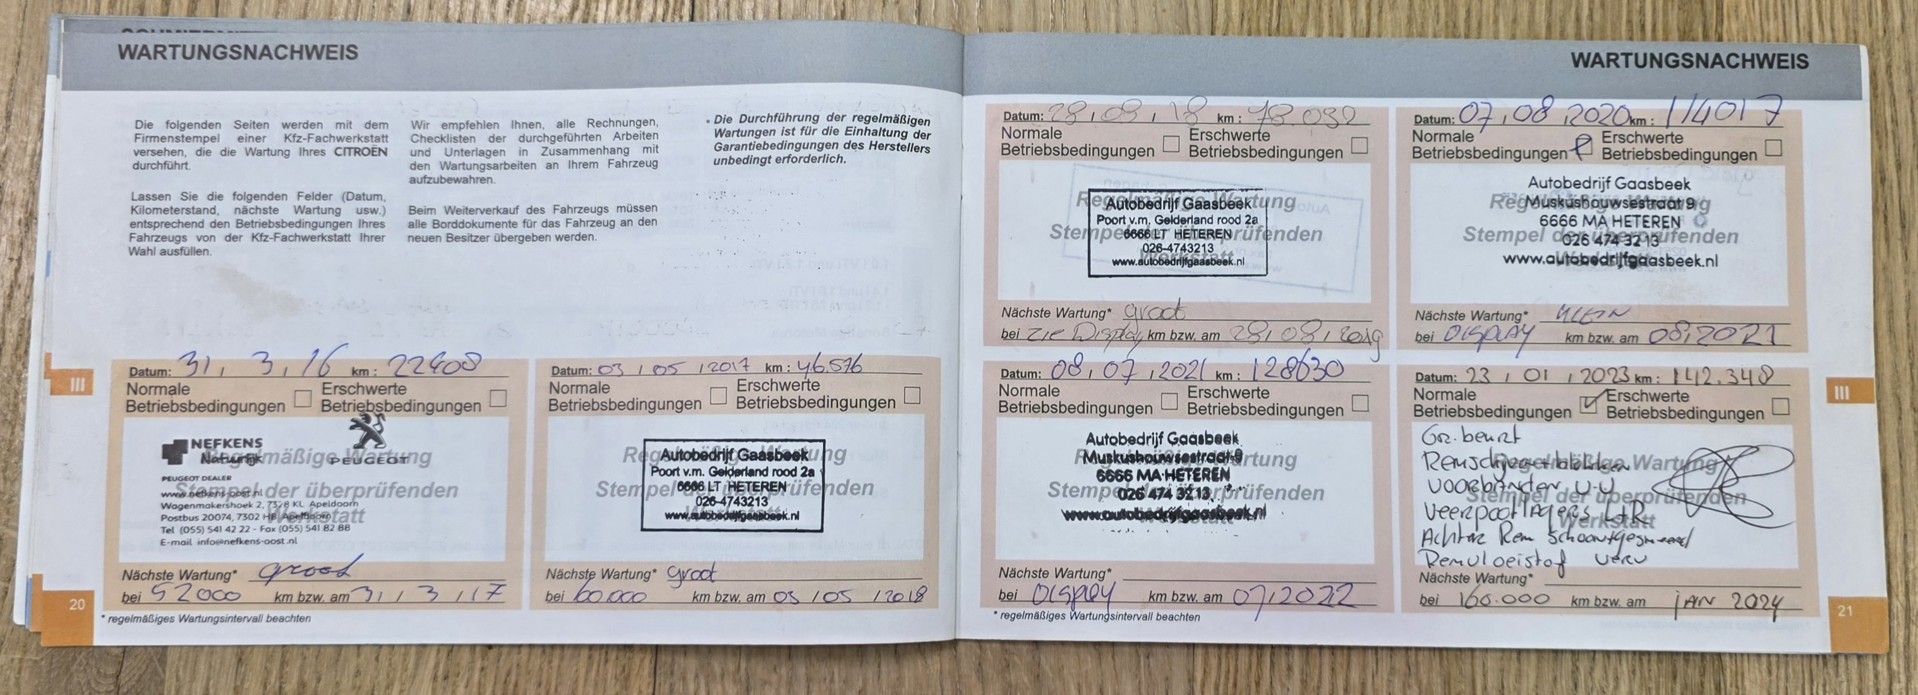 WARTUNGSNACHWEIS
Die folgenden Seiten werden mit dem
Firmenstempel einer Kfz-Fachwerkstatt
versehen, die die Wartung Ihres CITROËN
durchführt.
Lassen Sie die folgenden Felder (Datum,
Kilometerstand, nächste Wartung usw.)
entsprechend den Betriebsbedingungen Ihres
Fahrzeugs von der Kfz-Fachwerkstatt Ihrer
Wahl ausfüllen.
Wir empfehlen Ihnen, alle Rechnungen,
Checklisten der durchgeführten Arbeiten
und Unterlagen in Zusammenhang mit
den Wartungsarbeiten an Ihrem Fahrzeug
aufzubewahren.
Beim Weiterverkauf des Fahrzeugs müssen
alle Borddokumente für das Fahrzeug an den
neuen Besitzer übergeben werden.
• Die Durchführung der regelmäßigen
Wartungen ist für die Einhaltung der
Garantiebedingungen des Herstellers
unbedingt erforderlich.
III
Datum: 31, 3, 16 km : 22408
Normale
Betriebsbedingungen
Erschwerte
Betriebsbedingungen
Regelmäßige Wartung
Stempel der überprüfenden
Werkstatt
NEFKENS
Natuurlijk
PEUGEOT
PEUGEOT DEALER
www.nefkens-oost.nl
Wagenmakershoek 2, 7328 KL Apeldoorn
Postbus 20074, 7302 HB Apeldoorn
Tel (055) 541 42 22 - Fax (055) 541 82 88
E-mail info@nefkens-oost.nl
Nächste Wartung* groot
bei 52000 km bzw. am 31, 3, 17
Datum: 03, 05, 2017 km : 46.576
Normale
Betriebsbedingungen
Erschwerte
Betriebsbedingungen
Regelmäßige Wartung
Stempel der überprüfenden
Autobedrijf Gaasbeek
Poort v.m. Gelderland rood 2a
6666 LT HETEREN
026-4743213
www.autobedrijfgaasbeek.nl
Nächste Wartung* groot
bei 60.000 km bzw. am 03, 05, 2018
20
* regelmäßiges Wartungsintervall beachten
WARTUNGSNACHWEIS
Datum: 28, 08, 18 78.032
Normale
Betriebsbedingungen
Erschwerte
Betriebsbedingungen
Regelmäßige Wartung
Stempel der überprüfenden
Werkstatt
Autobedrijf Gaasbeek
Poort v.m. Gelderland rood 2a
6666 LT HETEREN
026-4743213
www.autobedrijfgaasbeek.nl
Nächste Wartung* groot
bei zie Display km bzw. am 28, 08, 2019
Datum: 07, 08, 2020 km : 114017
Normale
Betriebsbedingungen
Erschwerte
Betriebsbedingungen
Regelmäßige Wartung
Stempel der überprüfenden
Autobedrijf Gaasbeek
Muskushouwsestraat 9
6666 MA HETEREN
026 474 32 13
www.autobedrijfgaasbeek.nl
Nächste Wartung* KLEIN
bei DISPLAY km bzw. am 08, 2021
Datum: 08, 07, 2021 km : 128630
Normale
Betriebsbedingungen
Erschwerte
Betriebsbedingungen
Stempel der überprüfenden
Autobedrijf Gaasbeek
Muskushouwsestraat 9
6666 MA HETEREN
026 474 32 13
www.autobedrijfgaasbeek.nl
Nächste Wartung*
bei DISPLAY km bzw. am 07, 2022
Datum: 23, 01, 2023 km : 142.348
Normale
Betriebsbedingungen
Erschwerte
Betriebsbedingungen
Regelmäßige Wartung
Stempel der überprüfenden
Werkstatt
Gr. beurt
Remschijven + blokken
voorbanden v.v
veerpootlagers L+R
Achter Rem schoon + gesmeerd
Remvloeistof verv
Nächste Wartung*
bei 160.000 km bzw. am jan 2024
III
* regelmäßiges Wartungsintervall beachten
21